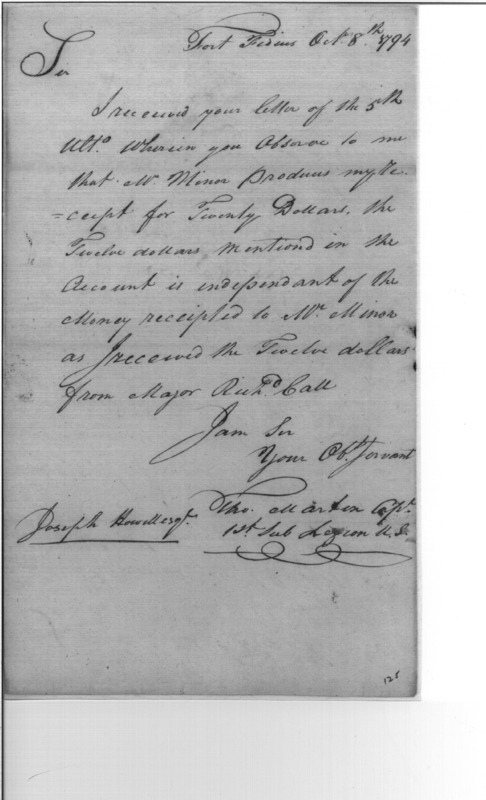 Fort Fidius Oct. 8th 1794
Sir
I received your letter of the 5th
Ulto. Wherein you Observe to me
that Mr. Minor produces my Re-
=ceipt for Twenty Dollars, the
Twelve dollars mentiond in the
Account is independant of the
Money receipted to Mr. Minor
as I received the Twelve dollars
from Major Richd. Call
I am Sir
Your Obt. Servant
Tho. Martin Capt.
1st. Sub Legion U.S.
Joseph Howell esqr.
125